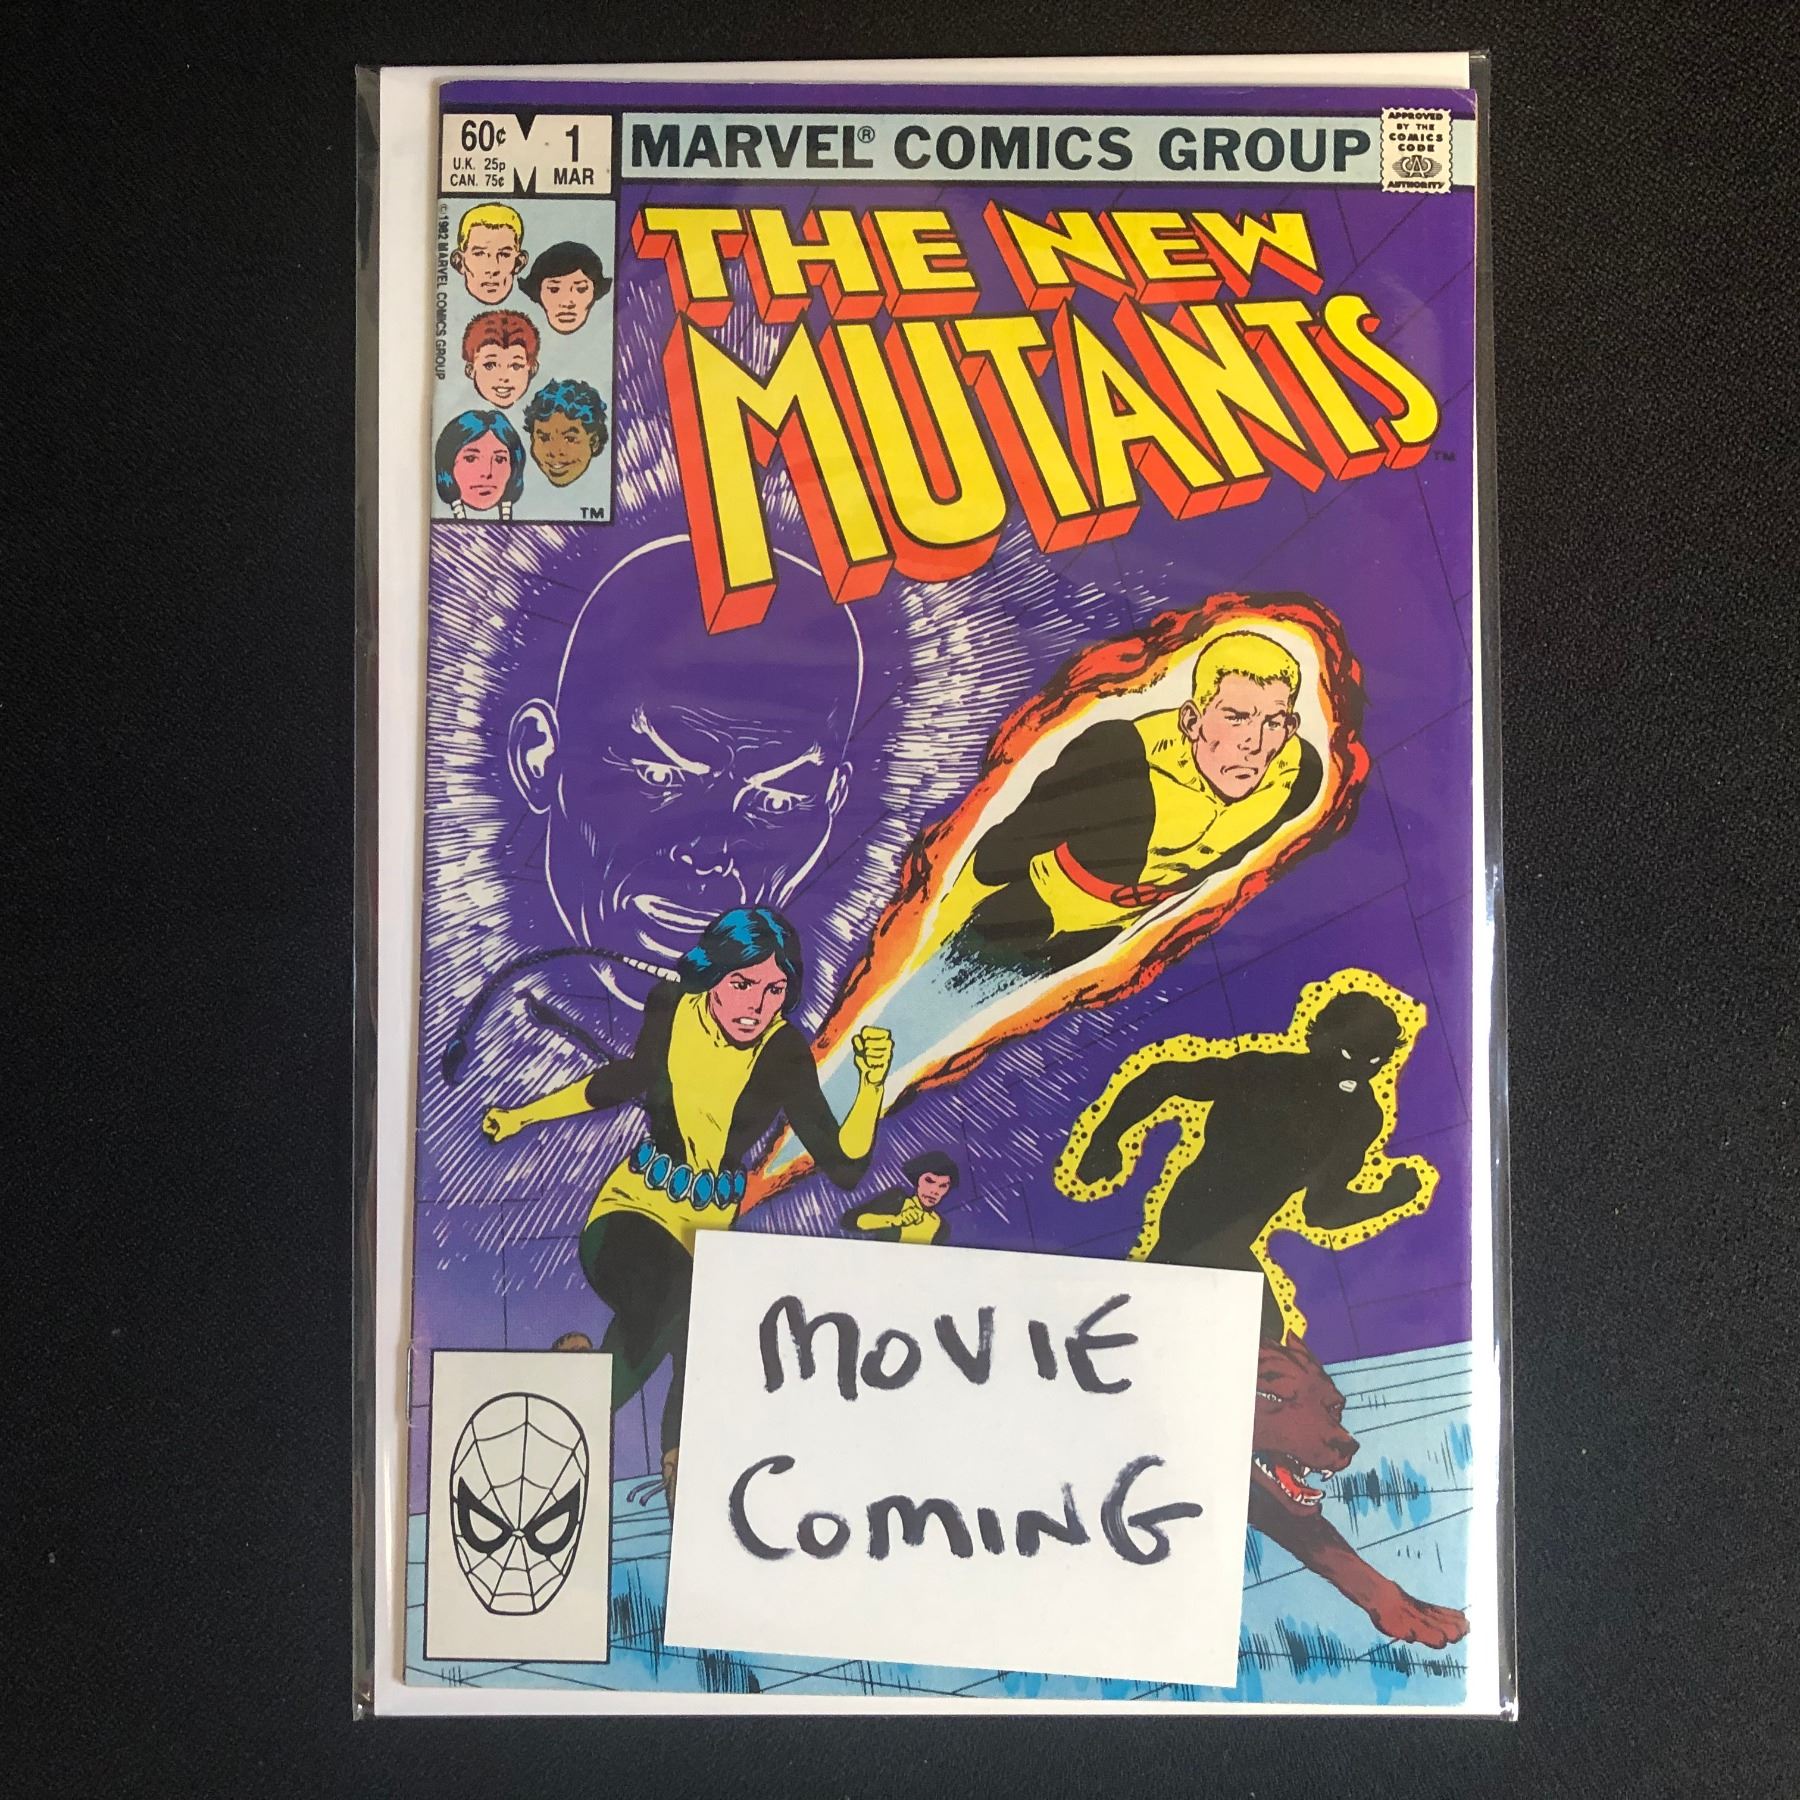 60¢
U.K. 25p
CAN. 75¢
1
MAR
MARVEL® COMICS GROUP
APPROVED
BY THE
COMICS
CODE
CA
AUTHORITY
©1982 MARVEL COMICS GROUP
TM
THE NEW
MUTANTS
TM
MOVIE
COMING